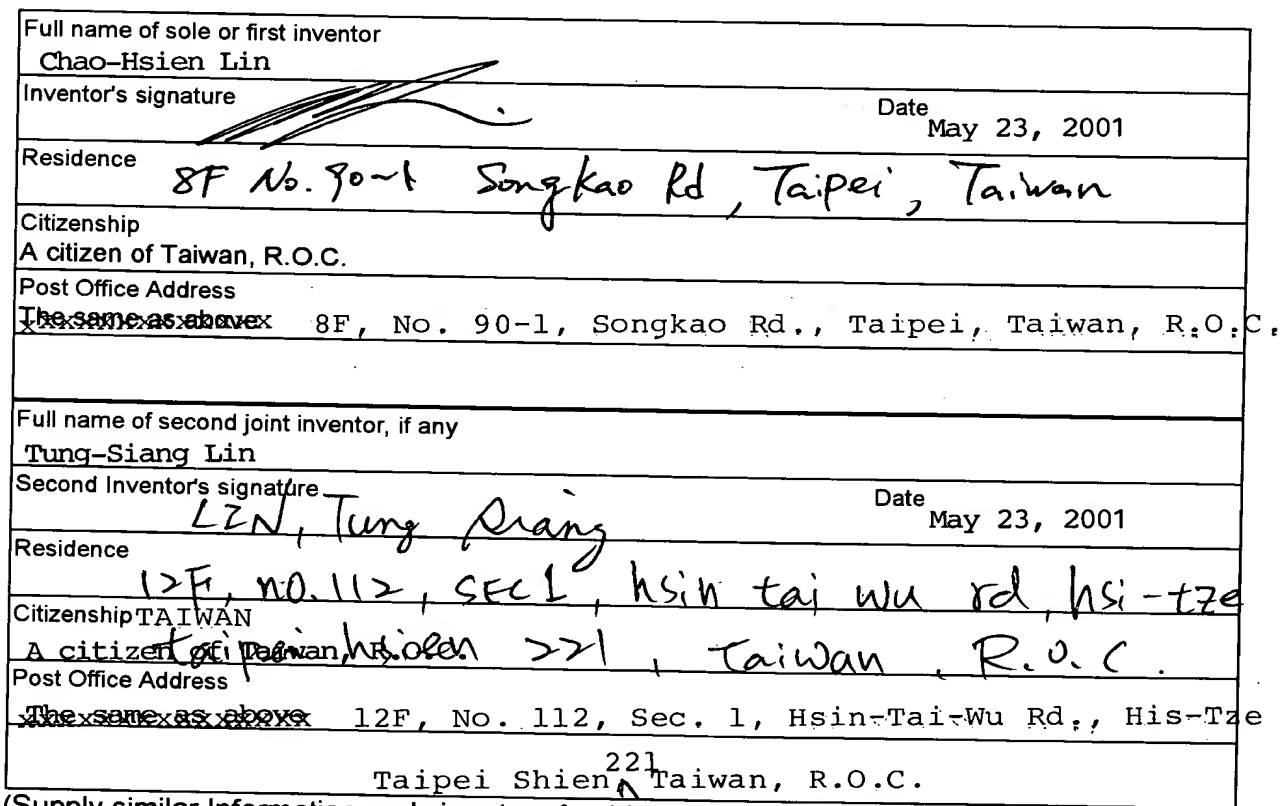 Full name of sole or first inventor
Chao-Hsien Lin
Inventor's signature
Date
May 23, 2001
Residence 8F No. 90-1 Songkao Rd, Taipei, Taiwan
Citizenship
A citizen of Taiwan, R.O.C.
Post Office Address
The same as above 8F, No. 90-1, Songkao Rd., Taipei, Taiwan, R.O.C.
Full name of second joint inventor, if any
Tung-Siang Lin
Second Inventor's signature LIN, Tung Siang
Date
May 23, 2001
Residence
12F, no.112, SEC1, hsin tai wu rd, hsi-tze
Citizenship TAIWAN
A citizen of Taiwan, R.O.C.
taipei hsien 221, Taiwan, R.O.C.
Post Office Address
The same as above 12F, No. 112, Sec. 1, Hsin-Tai-Wu Rd., His-Tze
Taipei Shien 221 Taiwan, R.O.C.